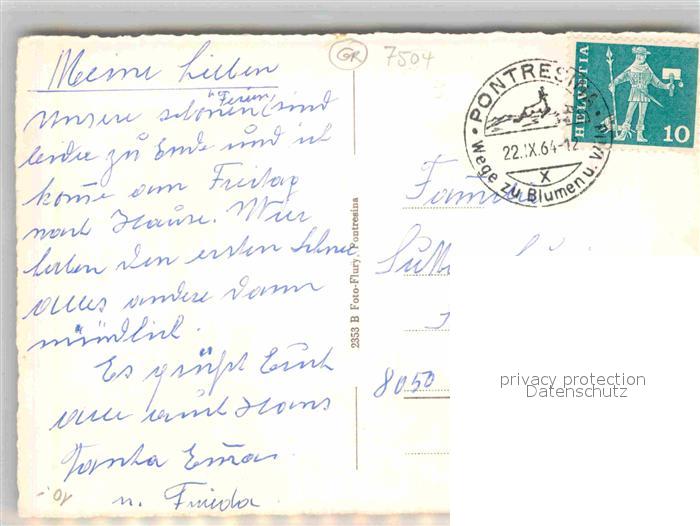 GR 7504
Meine Lieben
Unsere schönen Ferien sind
leider zu Ende und ich
komme am Freitag
nach Hause. Wir
haben den ersten Schnee
alles andere dann
mündlich.
Es grüßt Euch
alle auch Hans
Tanta Emma
u. Frieda
-.01
2353 B Foto-Flury, Pontresina
PONTRESINA
22.IX.64-12
X
Wege zu Blumen u. Wild
HELVETIA
10
Familie
8050
privacy protection
Datenschutz